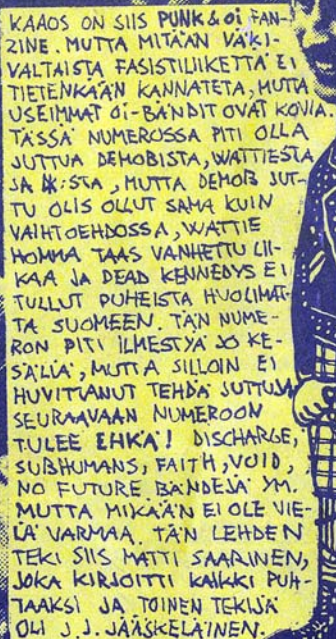 KAAOS ON SIIS PUNK & Oi FAN-
ZINE. MUTTA MITÄÄN VÄKI-
VALTAISTA FASISTILIIKETTÄ EI
TIETENKÄÄN KANNATETA, MUTTA
USEIMMAT Oi-BÄNDIT OVAT KOVIA
TÄSSÄ NUMEROSSA PITI OLLA
JUTTUA DEMOBISTA, WATTIESTA
JA DK:STA, MUTTA DEMOB JUT-
TU OLIS OLLUT SAMA KUIN
VAIHTOEHDOSSA, WATTIE
HOMMA TAAS VANHETTU LII-
KAA JA DEAD KENNEDYS EI
TULLUT PUHEISTA HUOLIMAT-
TA SUOMEEN. TÄN NUME-
RON PITI ILMESTYÄ JO KE-
SÄLLÄ, MUTTA SILLOIN EI
HUVITTANUT TEHDÄ JUTTUJA
SEURAAVAAN NUMEROON
TULEE EHKÄ! DISCHARGE,
SUBHUMANS, FAITH, VOID,
NO FUTURE BÄNDEJÄ YM.
MUTTA MIKÄÄN EI OLE VIE-
LÄ VARMAA. TÄN LEHDEN
TEKI SIIS MATTI SAARINEN,
JOKA KIRJOITTI KAIKKI PUH-
TAAKSI JA TOINEN TEKIJÄ
OLI J.J. JÄÄSKELÄINEN.